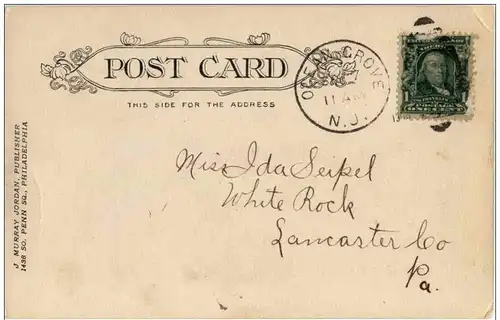 POST CARD
THIS SIDE FOR THE ADDRESS
OCEAN GROVE
11 AM
N.J.
Miss Ida Seipel
White Rock
Lancaster Co
Pa.
J. MURRAY JORDAN, PUBLISHER
1438 SO. PENN SQ., PHILADELPHIA